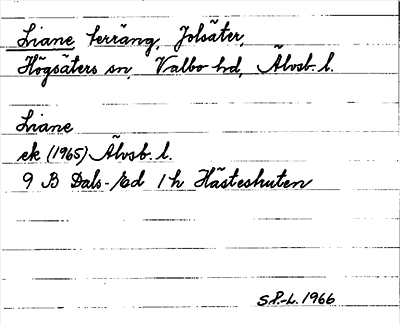 Liane, terräng, Jolsäter,
Högsäters sn, Valbo hd, Älvsb. l.
Liane
ek (1965) Älvsb. l.
9 B Dals-Ed 1 h Hästeshuten
S.P.-L. 1966